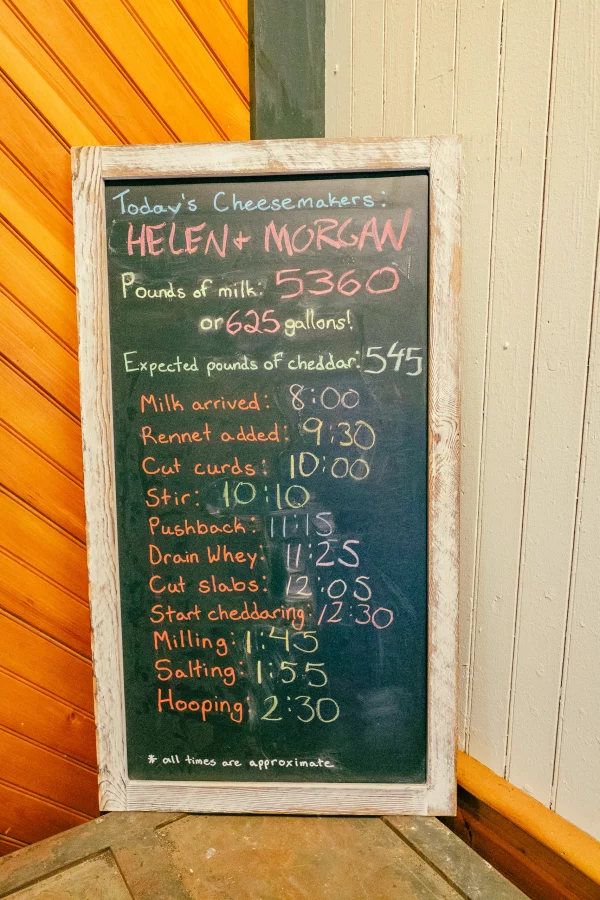 Today's Cheesemakers:
HELEN + MORGAN
Pounds of milk: 5360
or 625 gallons!
Expected pounds of cheddar: 545
Milk arrived: 8:00
Rennet added: 9:30
Cut curds: 10:00
Stir: 10:10
Pushback: 11:15
Drain Whey: 11:25
Cut slabs: 12:05
Start cheddaring: 12:30
Milling: 1:45
Salting: 1:55
Hooping: 2:30
* all times are approximate